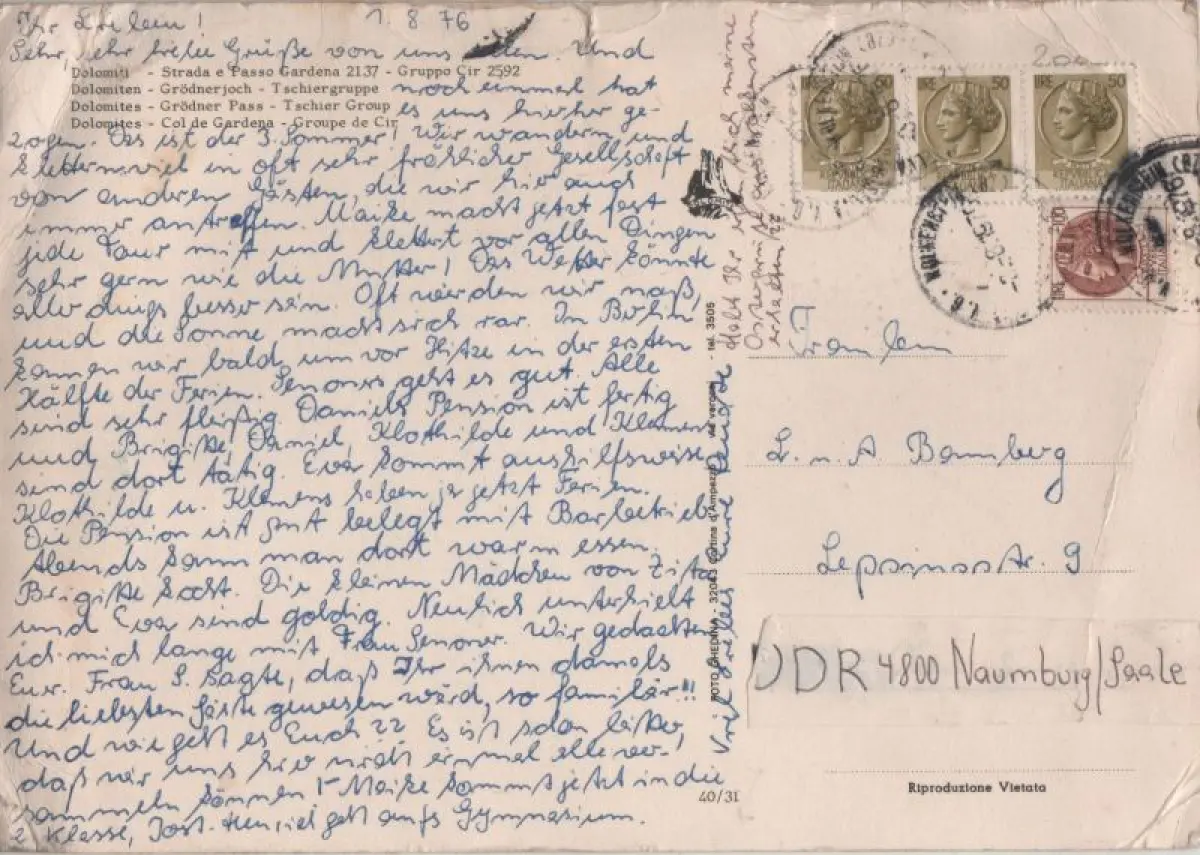 Ihr Lieben! 1.8.76
Sehr, sehr viele Grüße von uns allen. Und
Dolomiti - Strada e Passo Gardena 2137 - Gruppo Cir 2592
Dolomiten - Grödnerjoch - Tschiergruppe
Dolomites - Grödner Pass - Tschier Group
Dolomites - Col de Gardena - Groupe de Cir
noch einmal hat
es uns hierher ge-
zogen. Das ist der 3. Sommer! Wir wandern und
klettern viel in oft sehr fröhlicher Gesellschaft
von anderen Gästen, die wir hier auch
immer antreffen. Maike macht jetzt fast
jede Tour mit und klettert vor allen Dingen
sehr gern wie die Mutter! Das Wetter könnte
allerdings besser sein. Oft werden wir naß,
und die Sonne macht sich rar. In Berlin
kamen wir bald um vor Hitze in der ersten
Hälfte der Ferien. Senoners geht es gut. Alle
sind sehr fleißig. Daniels Pension ist fertig
und Brigitte, Daniel, Klothilde und Klemens
sind dort tätig. Eva kommt aushilfsweise
Klothilde u. Klemens haben ja jetzt Ferien.
Die Pension ist gut belegt mit Barbetrieb
Abends kann man dort warm essen.
Brigitte kocht. Die kleinen Mädchen von Zita
und Eva sind goldig. Neulich unterhielt
ich mich lange mit Frau Senoner. Wir gedachten
Eurer. Frau S. sagte, daß Ihr ihnen damals
die liebsten Gäste gewesen wärd, so familiär!!
Und wie geht es Euch?? Es ist schon bitter,
daß wir uns hier nicht einmal alle ver-
sammeln können! - Maike kommt jetzt in die
2 Klasse, Jost geht aufs Gymnasium.
Habt Ihr eigtlich meine
Ostergrüße
erhalten??
FOTO GHEDINA - 32043 Cortina d'Ampezzo - tel. 3505
Viele liebe Grüße Eure
40/31
200
LIRE 50
LIRE 50
LIRE 50
LIRE 100
L. u. A Bamberg
Lepsiusstr. 9
DDR 4800 Naumburg/Saale
Riproduzione Vietata